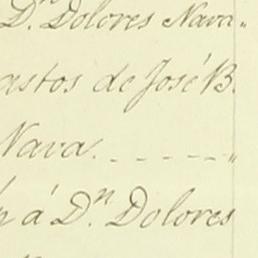 D.ⁿ Dolores Nava„
astos de José B.
Nava. - - - - - „
á D.ⁿ Dolores